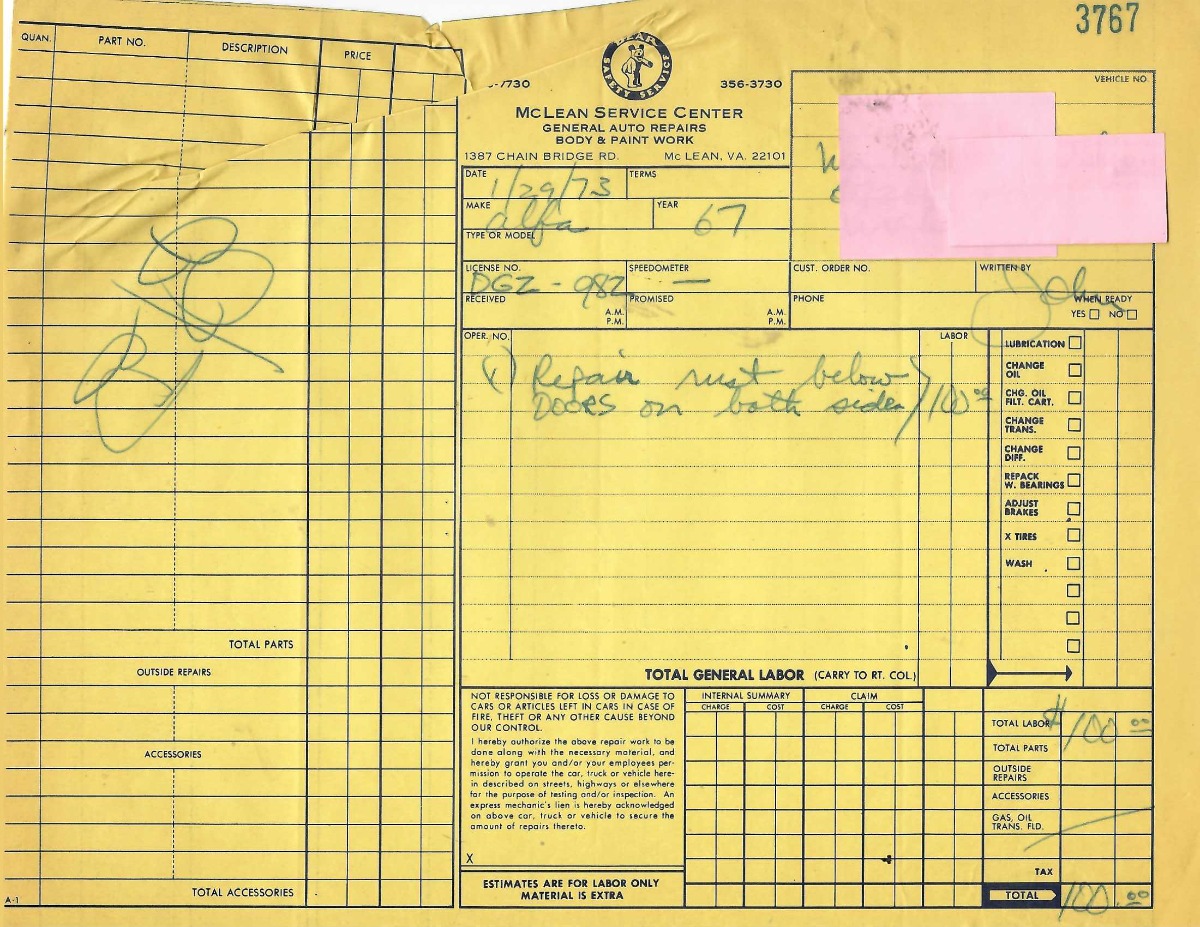 3767
QUAN. PART NO. DESCRIPTION PRICE
BEAR
SAFETY SERVICE
-7730 356-3730
McLEAN SERVICE CENTER
GENERAL AUTO REPAIRS
BODY & PAINT WORK
1387 CHAIN BRIDGE RD. Mc LEAN, VA. 22101
VEHICLE NO.
DATE 1/29/73 TERMS
MAKE alfa YEAR 67
TYPE OR MODEL
LICENSE NO. DGZ-982 SPEEDOMETER — CUST. ORDER NO. WRITTEN BY John
RECEIVED A.M. P.M. PROMISED A.M. P.M. PHONE WHEN READY
YES NO
OPER. NO. LABOR
(1) Repair rust below
DOORS on both sides) 100.00
LUBRICATION
CHANGE
OIL
CHG. OIL
FILT. CART.
CHANGE
TRANS.
CHANGE
DIFF.
REPACK
W. BEARINGS
ADJUST
BRAKES
X TIRES
WASH
TOTAL PARTS
OUTSIDE REPAIRS
ACCESSORIES
TOTAL ACCESSORIES
A-1
TOTAL GENERAL LABOR (CARRY TO RT. COL.)
NOT RESPONSIBLE FOR LOSS OR DAMAGE TO
CARS OR ARTICLES LEFT IN CARS IN CASE OF
FIRE, THEFT OR ANY OTHER CAUSE BEYOND
OUR CONTROL.
I hereby authorize the above repair work to be
done along with the necessary material, and
hereby grant you and/or your employees per-
mission to operate the car, truck or vehicle here-
in described on streets, highways or elsewhere
for the purpose of testing and/or inspection. An
express mechanic's lien is hereby acknowledged
on above car, truck or vehicle to secure the
amount of repairs thereto.
X
ESTIMATES ARE FOR LABOR ONLY
MATERIAL IS EXTRA
INTERNAL SUMMARY CLAIM
CHARGE COST CHARGE COST
TOTAL LABOR $100.00
TOTAL PARTS
OUTSIDE
REPAIRS
ACCESSORIES
GAS, OIL
TRANS. FLD.
TAX
TOTAL 100.00